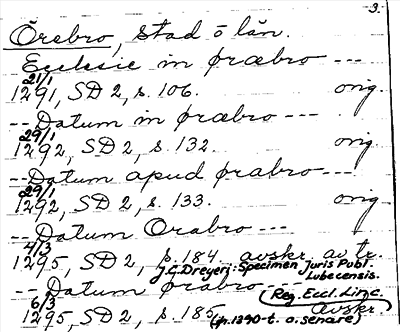 3.
Örebro, stad o län.
Ecclesie in øræbro ---
21/1
1291, SD 2, s. 106. orig.
-- Datum in øræbro ---
29/1
1292, SD 2, s. 132. orig.
-- Datum apud ørabro ---
29/1
1292, SD 2, s. 133. orig.
-- Datum Orabro ---
4/3
1295, SD 2, s. 184. avskr. av tr.
J.C. Dreyeri: Specimen Juris Publ.
Lubecensis.
-- Datum ørabro ---
Reg. Eccl. Linc.
6/3
1295, SD 2, s. 185. avskr.
(fr. 1390-t. o. senare)